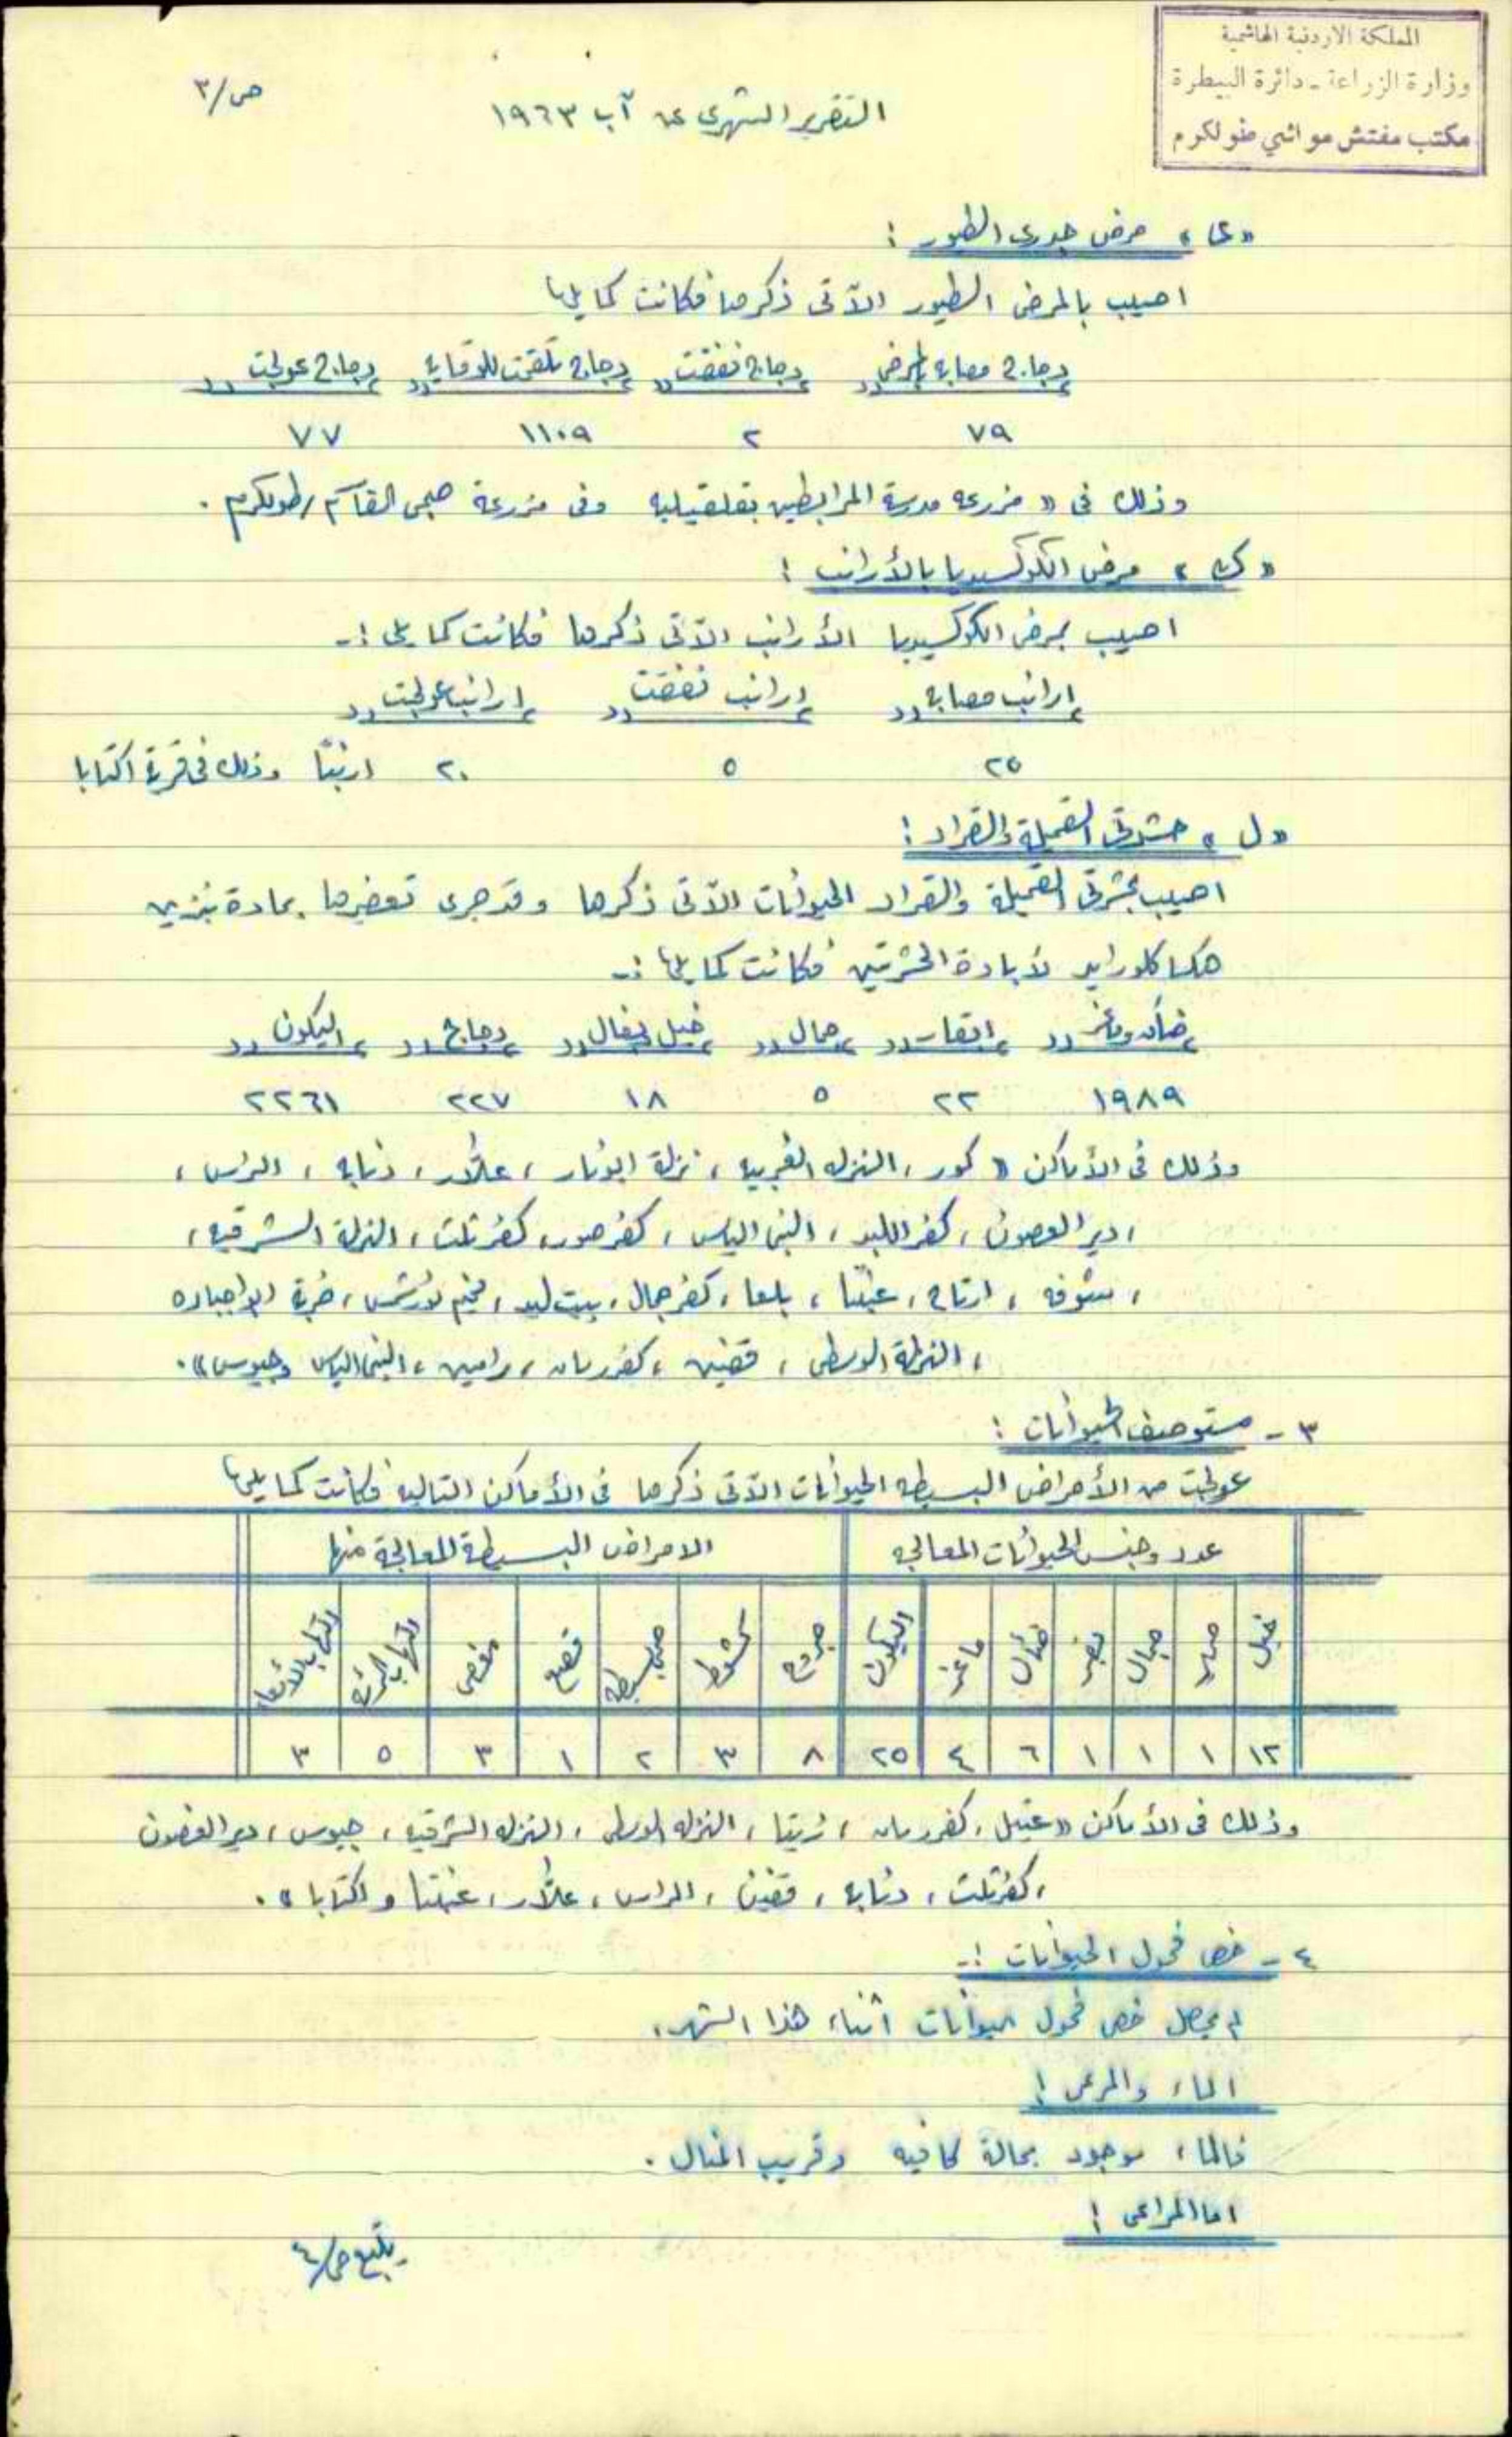 المملكة الاردنية الهاشمية
وزارة الزراعة - دائرة البيطرة
مكتب مفتش مواشي طولكرم
ص/٣
التقرير الشهري عن آب ١٩٦٣
مرض جدري الطيور :
اصيب بالمرض الطيور الآتى ذكرها فكانت كما يلي
دجاج مصابه بالمرض دجاج نفقت دجاج تلقحت للوقاية دجاج عولجت
٧٩ ٢ ١١٠٩ ٧٧
وذلك في « مزرعه مدرسة المرابطين بقلقيليه وفى مزرعة صبحي القاسم / طولكرم .
« ك » مرض الكوكسيديا بالأرانب :
اصيب بمرض الكوكسيديا الأرانب الآتى ذكرها فكانت كما يلي :-
ارانب مصابه ارانب نفقت ارانب عولجت
٢٥ ٥ ٢٠ ارنبًا وذلك فى قرية اكتابا
« ل » حشرتى القميلة والقراد :
اصيب بحشرتى القميلة والقراد الحيوانات الآتى ذكرها وقد جرى تعفيرها بمادة بنزين
هكسا كلورايد لأبادة الحشرتين فكانت كما يلي :-
ضأن وماعز ابقار جمال خيل بغال دجاج اليكون
١٩٨٩ ٢٢ ٥ ١٨ ٢٢٧ ٢٢٦١
وذلك فى الأماكن « كور ، النزله الغربيه ، نزلة ابو نار ، علار ، ذنابه ، الراس ،
، دير الغصون ، كفر اللبد ، النبي الياس ، كفر صور ، كفر ثلث ، النزلة الشرقيه ،
، شوفه ، ارتاح ، عنبتا ، بلعا ، كفر جمال ، بيت ليد ، مخيم نور شمس ، خربة جباره
، النزلة الوسطى ، قفين ، كفر رمان ، رامين ، النبي الياس وجيوس » .
٣ - مستوصف الحيوانات :
عولجت من الأمراض البسيطه الحيوانات الآتى ذكرها فى الأماكن التاليه فكانت كما يلي
عدد وجنس الحيوانات المعالجه الامراض البسيطة المعالجة منها
خيل حمير جمال بقر ضأن ماعز اليكون جروح كشوط بسيطه مغص التهاب الرئه التهاب بالأمعاء
١٢ ١ ١ ١ ٦ ٤ ٢٥ ٨ ٣ ٢ ١ ٣ ٥ ٣
وذلك فى الأماكن « عتيل ، كفر رمان ، زيتا ، النزله الوسطى ، النزله الشرقيه ، جيوس ، دير الغصون
، كفر ثلث ، ذنابه ، قفين ، الراس ، علار ، عنبتا واكتابا » .
٤ - فحص فحول الحيوانات :-
لم يحصل فحص فحول حيوانات اثناء هذا الشهر .
الماء والمرعى :
فالماء موجود بحالة كافيه وقريب المنال .
اما المراعى :
يتبع ص/٤